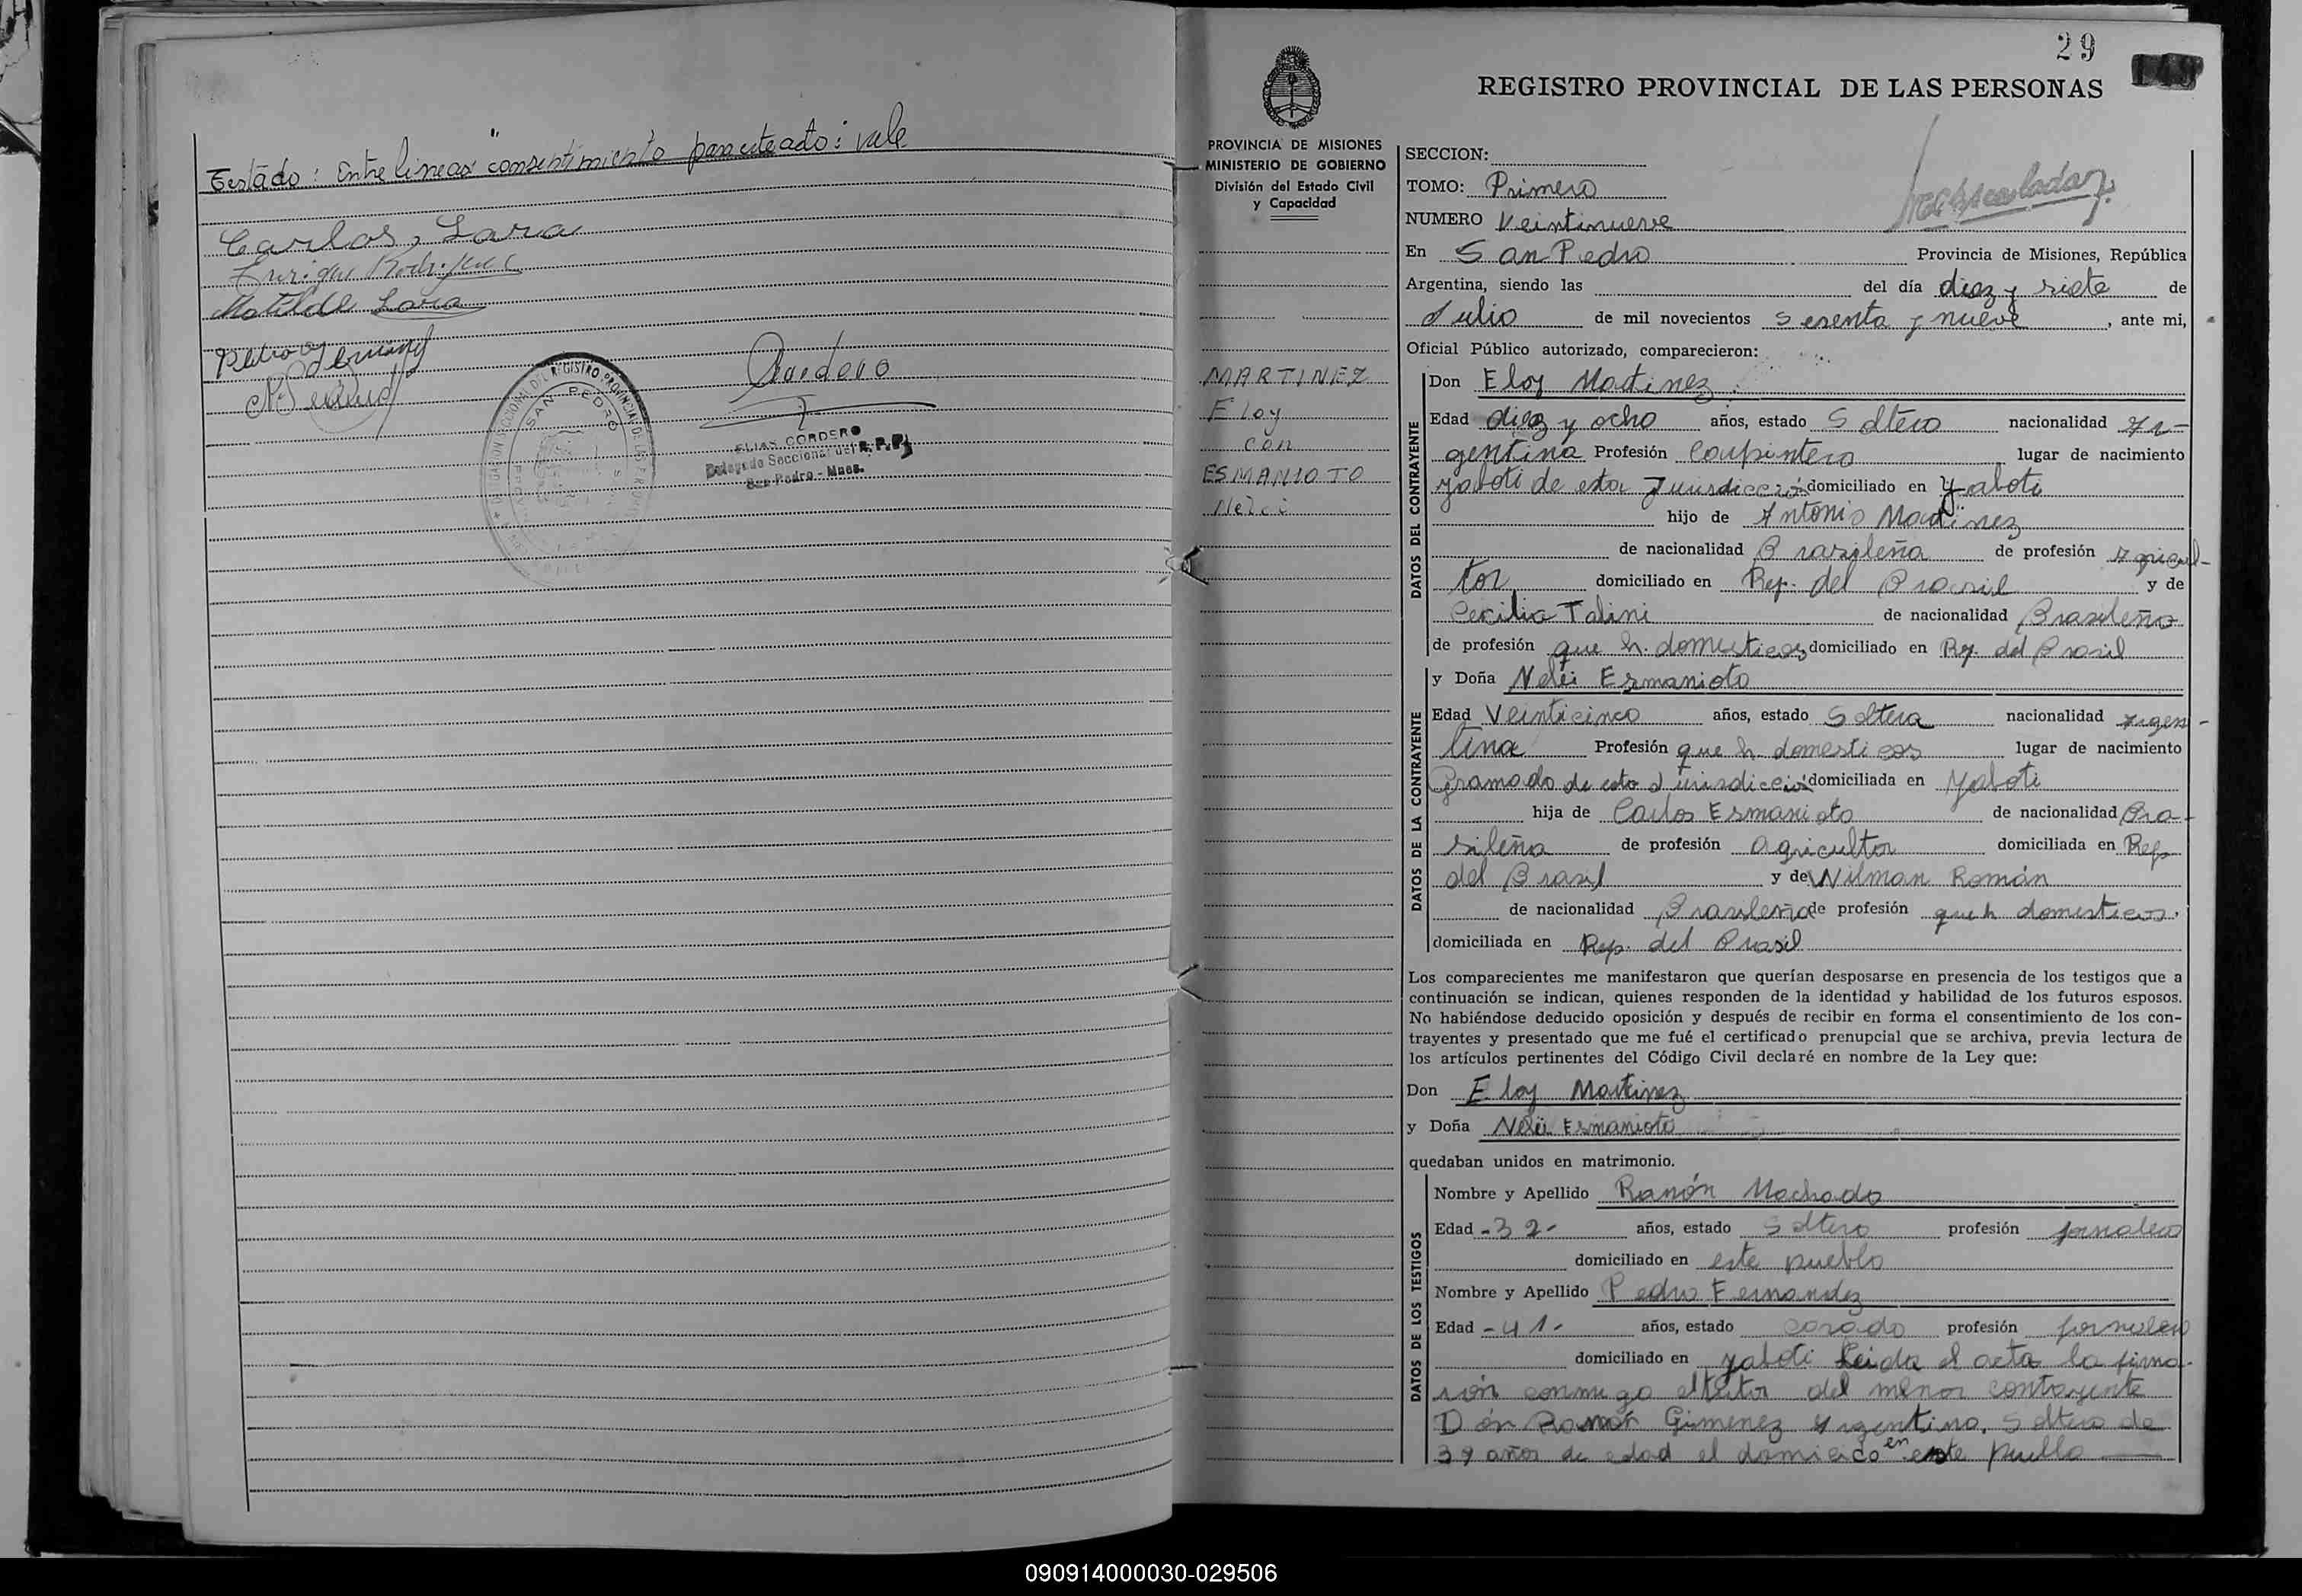 Testado: Entre lineas "consentimiento : vale
Carlos Lara
Enrique Rodriguez
Matilde Lara
Cordero
ELIAS CORDERO
Delegado Seccional del R.P.P.
San Pedro - Mnes.
SAN PEDRO
29
REGISTRO PROVINCIAL DE LAS PERSONAS
PROVINCIA DE MISIONES
MINISTERIO DE GOBIERNO
División del Estado Civil
y Capacidad
MARTINEZ
Eloy
con
ESMANIOTO
Nelci
SECCION:
TOMO: Primero
NUMERO Veintinueve
En San Pedro Provincia de Misiones, República
Argentina, siendo las del día diez y siete de
Julio de mil novecientos sesenta y nueve, ante mi,
Oficial Público autorizado, comparecieron:
DATOS DEL CONTRAYENTE
Don Eloy Martinez
Edad diez y ocho años, estado Soltero nacionalidad Ar-
gentina Profesión Carpintero lugar de nacimiento
Yaboti de esta Jurisdicción domiciliado en Yaboti
hijo de Antonio Martinez
de nacionalidad Brasileña de profesión Agricul-
tor domiciliado en Rep. del Brasil y de
Cecilia Talini de nacionalidad Brasileña
de profesión que h. domesticos domiciliado en Rep. del Brasil
DATOS DE LA CONTRAYENTE
y Doña Nelci Esmanioto
Edad Veinticinco años, estado Soltera nacionalidad Argen-
tina Profesión que h. domesticos lugar de nacimiento
Gramado de esta Jurisdicción domiciliada en Yaboti
hija de Carlos Esmanioto de nacionalidad Bra-
sileña de profesión Agricultor domiciliada en Rep.
del Brasil y de Wilman Román
de nacionalidad Brasileña de profesión que h domesticos.
domiciliada en Rep. del Brasil
Los comparecientes me manifestaron que querían desposarse en presencia de los testigos que a
continuación se indican, quienes responden de la identidad y habilidad de los futuros esposos.
No habiéndose deducido oposición y después de recibir en forma el consentimiento de los con-
trayentes y presentado que me fué el certificado prenupcial que se archiva, previa lectura de
los artículos pertinentes del Código Civil declaré en nombre de la Ley que:
Don Eloy Martinez
y Doña Nelci Esmanioto
quedaban unidos en matrimonio.
DATOS DE LOS TESTIGOS
Nombre y Apellido Ramón Machado
Edad -32- años, estado Soltero profesión jornalero
domiciliado en este pueblo
Nombre y Apellido Pedro Fernandez
Edad -41- años, estado casado profesión jornalero
domiciliado en Yaboti Leida el acta la firma-
rón conmigo el tutor del menor contrayente
Dón Ramón Gimenez Argentino, Soltero de
39 años de edad el domicico en este pueblo
090914000030-029506